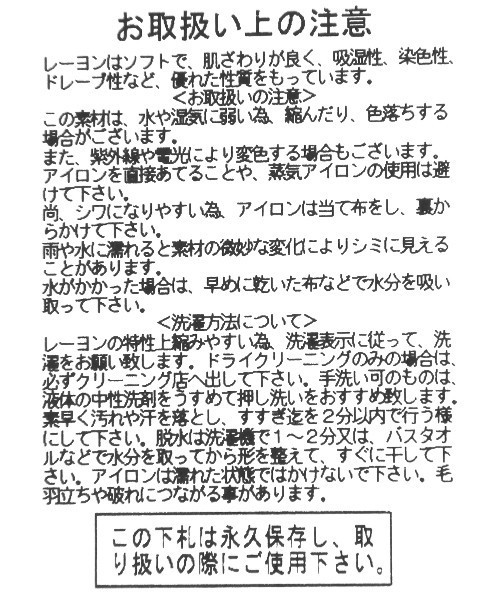 お取扱い上の注意
レーヨンはソフトで、肌ざわりが良く、吸湿性、染色性、
ドレープ性など、優れた性質をもっています。
＜お取扱いの注意＞
この素材は、水や湿気に弱い為、縮んだり、色落ちする
場合がございます。
また、紫外線や電光により変色する場合もございます。
アイロンを直接あてることや、蒸気アイロンの使用は避
けて下さい。
尚、シワになりやすい為、アイロンは当て布をし、裏か
らかけて下さい。
雨や水に濡れると素材の微妙な変化によりシミに見える
ことがあります。
水がかかった場合は、早めに乾いた布などで水分を吸い
取って下さい。
＜洗濯方法について＞
レーヨンの特性上縮みやすい為、洗濯表示に従って、洗
濯をお願い致します。ドライクリーニングのみの場合は、
必ずクリーニング店へ出して下さい。手洗い可のものは、
液体の中性洗剤をうすめて押し洗いをおすすめ致します。
素早く汚れや汗を落とし、すすぎ迄を２分以内で行う様
にして下さい。脱水は洗濯機で１～２分又は、バスタオ
ルなどで水分を取ってから形を整えて、すぐに干して下
さい。アイロンは濡れた状態ではかけないで下さい。毛
羽立ちや破れにつながる事があります。
この下札は永久保存し、取
り扱いの際にご使用下さい。